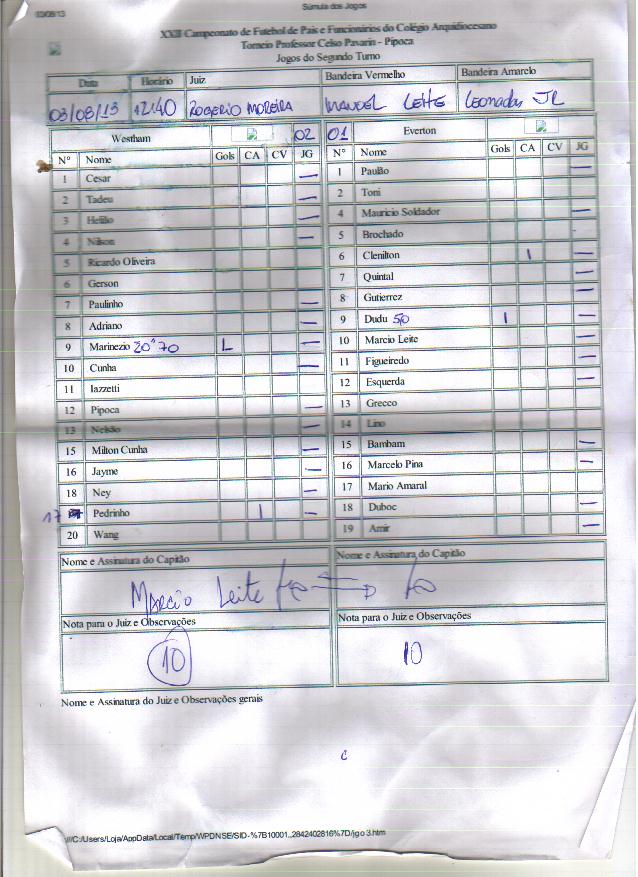 03/08/13 Súmula dos Jogos
XXII Campeonato de Futebol de Pais e Funcionários do Colégio Arquidiocesano
Torneio Professor Celso Pavarin - Pipoca
Jogos do Segundo Turno
Data Horário Juiz Bandeira Vermelho Bandeira Amarelo
03/08/13 12:40 ROGERIO MOREIRA MANOEL LEITE Leonadas JR
Westham 02 01 Everton
Nº Nome Gols CA CV JG Nº Nome Gols CA CV JG
1 Cesar — 1 Paulão —
2 Tadeu — 2 Toni
3 Helião — 4 Mauricio Soldador —
4 Nilson — 5 Brochado
5 Ricardo Oliveira 6 Clenilton 1 —
6 Gerson 7 Quintal —
7 Paulinho — 8 Gutierrez —
8 Adriano — 9 Dudu 50 1 —
9 Marinezio 20" 70 L — 10 Marcio Leite —
10 Cunha — 11 Figueiredo —
11 Iazzetti 12 Esquerda —
12 Pipoca — 13 Grecco
13 Nelsão 14 Lino
15 Milton Cunha — 15 Bambam —
16 Jayme — 16 Marcelo Pina —
18 Ney — 17 Mario Amaral
17 Pedrinho 1 — 18 Duboc —
20 Wang 19 Amir —
Nome e Assinatura do Capitão Nome e Assinatura do Capitão
Marcio Leite
Nota para o Juiz e Observações Nota para o Juiz e Observações
10 10
Nome e Assinatura do Juiz e Observações gerais
C
///C:/Users/Loja/AppData/Local/Temp/WPDNSE/SID-%7B10001,,2842402816%7D/jgo 3.htm